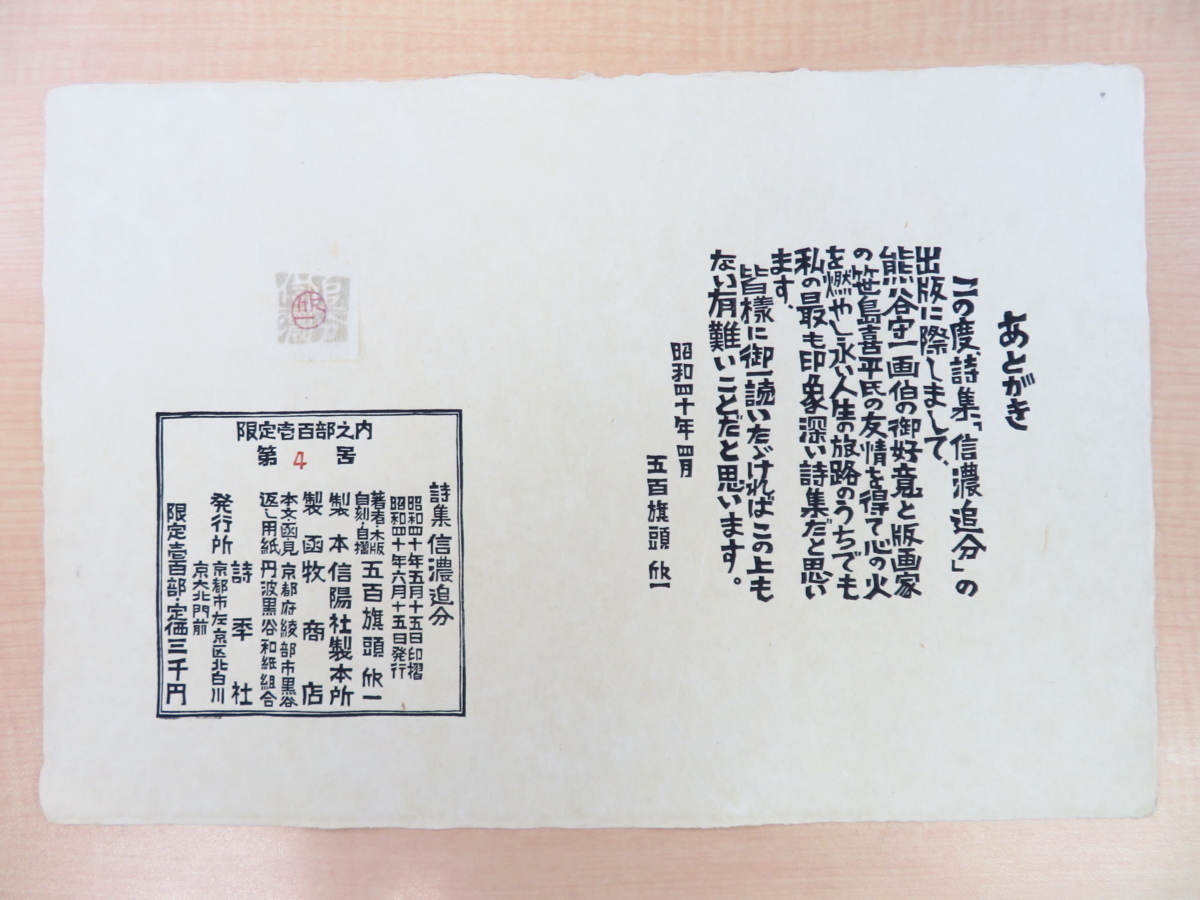 あとがき
この度、詩集「信濃追分」の
出版に際しまして、
熊谷守一画伯の御好意と版画家
の笹島喜平氏の友情を得て心の火
を燃やし永い人生の旅路のうちでも
私の最も印象深い詩集だと思い
ます、
皆様に御一読いたゞければこの上も
ない有難いことだと思います。
昭和四十年四月
五百旗頭欣一
限定壱百部之内
第4号
詩集信濃追分
昭和四十年五月十五日印摺
昭和四十年六月十五日発行
著者・木版
自刻・自摺 五百旗頭欣一
製本 信陽社製本所
製函 牧商店
本文・函・見 京都府綾部市黒谷
返し用紙 丹波黒谷和紙組合
発行所 詩季社
京都市左京区北白川
京大北門前
限定壱百部・定価三千円
追分
欣一